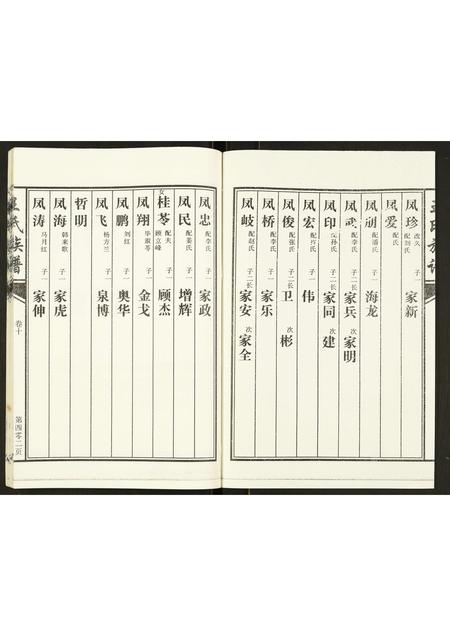 王氏族谱
凤珍 改久 配刘氏 子一 家新
凤爱 配 氏
凤丽 配潘氏 子一 海龙
凤武 配李氏 子二 长 家兵 次 家明
凤印 配孙氏 子二 长 家同 次 建
凤宏 配 氏 子一 伟
凤俊 配张氏 子二 长 卫 次 彬
凤桥 配李氏 子一 家乐
凤岐 配赵氏 子二 长 家安 次 家全
凤忠 配李氏 子一 家政
凤民 配姜氏 子一 增辉
女 桂苓 配夫 顾立峰 子一 顾杰
凤翔 毕淑苓 子一 金戈
凤鹏 刘红 子一 奥华
凤飞 杨方兰 子一 泉博
哲明
凤海 韩来歌 子一 家虎
凤涛 马月红 子一 家伸
王氏族谱
卷十
第四零二页